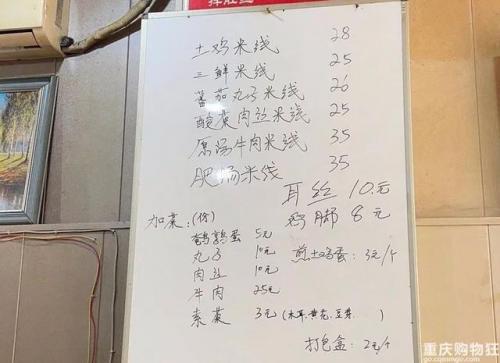 土鸡米线 28
三鲜米线 25
蕃茄丸子米线 26
酸菜肉丝米线 25
原汤牛肉米线 35
肥肠米线 35
耳丝 10元
鸡脚 8元
加菜:(份)
鹌鹑蛋 5元
丸子 10元 煎土鸡蛋:3元/个
肉丝 10元
牛肉 25元
素菜 3元 (木耳、黄花、豆芽 )
打包盒:2元/个
重庆购物狂
go.cqmmgo.com